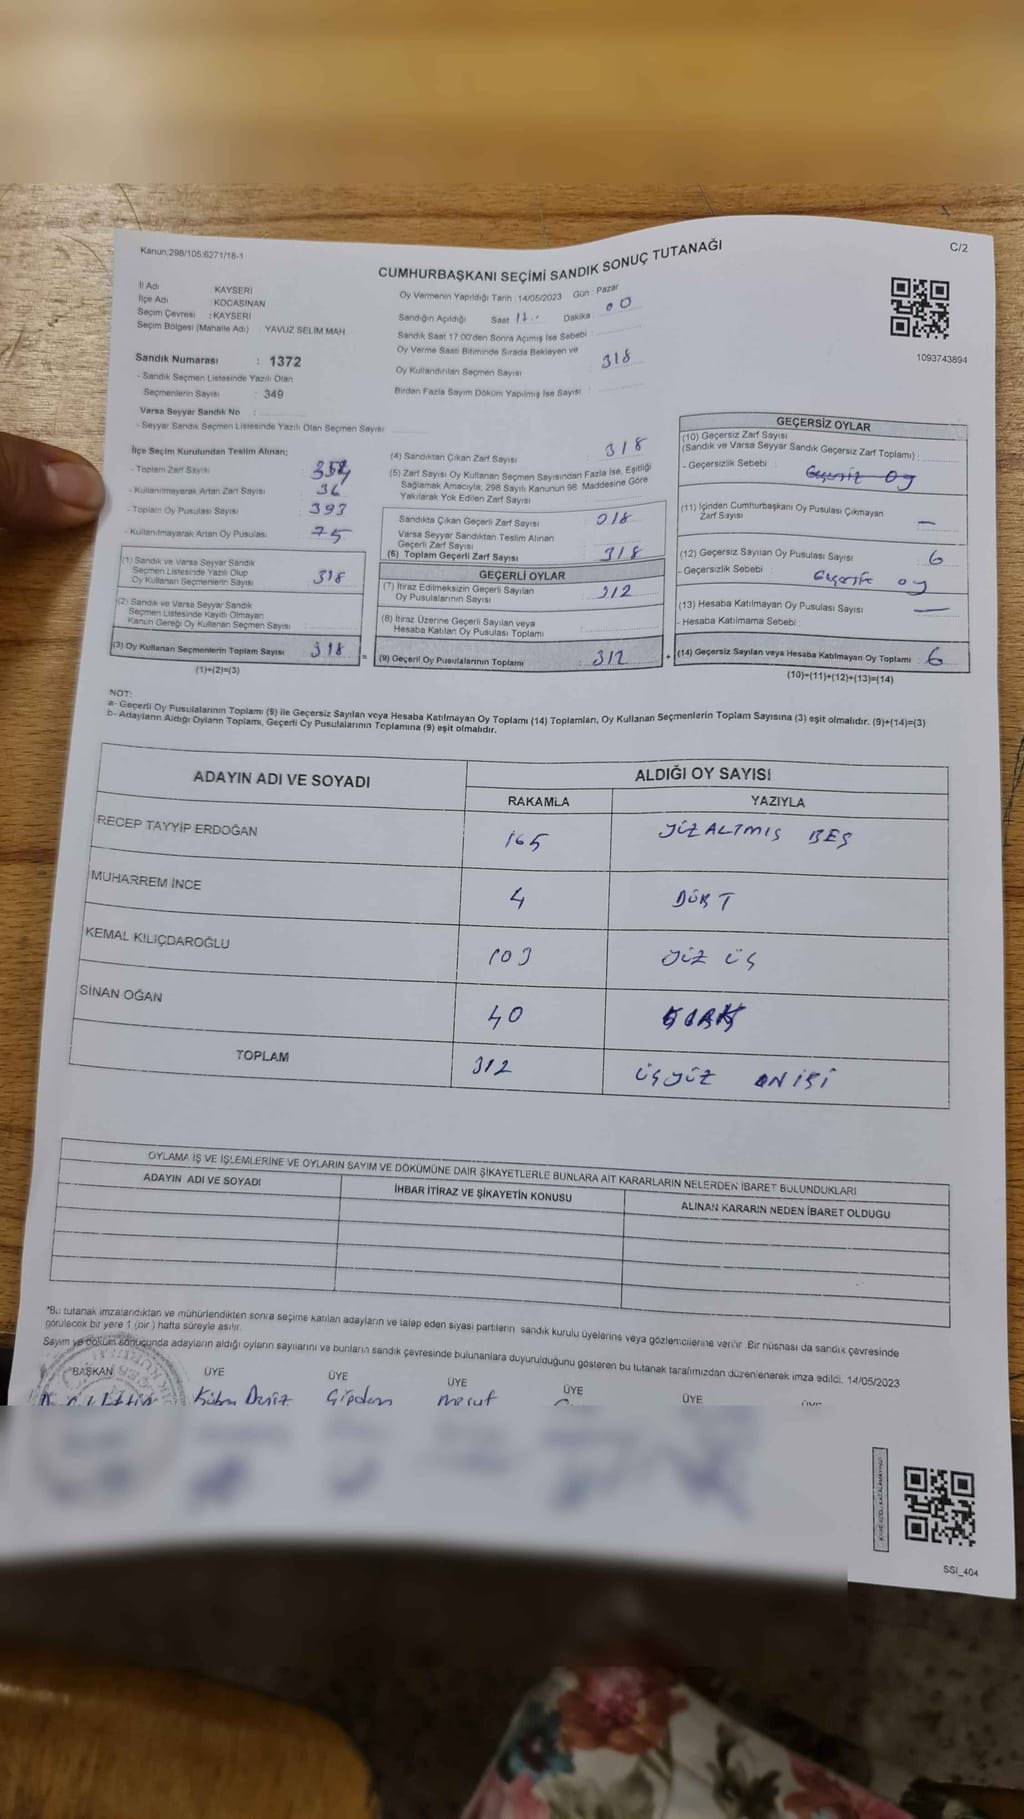 Kanun:298/105;6271/18-1
C/2
CUMHURBAŞKANI SEÇİMİ SANDIK SONUÇ TUTANAĞI
İl Adı KAYSERİ
İlçe Adı KOCASİNAN
Seçim Çevresi : KAYSERİ
Seçim Bölgesi (Mahalle Adı) YAVUZ SELİM MAH.
Oy Vermenin Yapıldığı Tarih : 14/05/2023 Gün : Pazar
Sandığın Açıldığı Saat 17 Dakika : 00
Sandık Saat 17:00'den Sonra Açımış İse Sebebi :
Oy Verme Saati Bitiminde Sırada Bekleyen ve
Oy Kullandırılan Seçmen Sayısı 318
Birden Fazla Sayım Döküm Yapılmış İse Sayısı :
1093743894
Sandık Numarası : 1372
- Sandık Seçmen Listesinde Yazılı Olan
Seçmenlerin Sayısı : 349
Varsa Seyyar Sandık No :
- Seyyar Sandık Seçmen Listesinde Yazılı Olan Seçmen Sayısı
İlçe Seçim Kurulundan Teslim Alınan;
- Toplam Zarf Sayısı : 354
- Kullanılmayarak Artan Zarf Sayısı : 36
- Toplam Oy Pusulası Sayısı : 393
- Kullanılmayarak Artan Oy Pusulası 75
(1) Sandık ve Varsa Seyyar Sandık
Seçmen Listesinde Yazılı Olup
Oy Kullanan Seçmenlerin Sayısı 318
(2) Sandık ve Varsa Seyyar Sandık
Seçmen Listesinde Kayıtlı Olmayan
Kanun Gereği Oy Kullanan Seçmen Sayısı
(3) Oy Kullanan Seçmenlerin Toplam Sayısı 318 =
(1)+(2)=(3)
(4) Sandıktan Çıkan Zarf Sayısı 318
(5) Zarf Sayısı Oy Kullanan Seçmen Sayısından Fazla İse, Eşitliği
Sağlamak Amacıyla, 298 Sayılı Kanunun 98. Maddesine Göre
Yakılarak Yok Edilen Zarf Sayısı
Sandıkta Çıkan Geçerli Zarf Sayısı 018
Varsa Seyyar Sandıktan Teslim Alınan
Geçerli Zarf Sayısı
(6) Toplam Geçerli Zarf Sayısı 318
GEÇERLİ OYLAR
(7) İtiraz Edilmeksizin Geçerli Sayılan
Oy Pusulalarının Sayısı 312
(8) İtiraz Üzerine Geçerli Sayılan veya
Hesaba Katılan Oy Pusulası Toplamı
(9) Geçerli Oy Pusulalarının Toplamı 312 +
GEÇERSİZ OYLAR
(10) Geçersiz Zarf Sayısı
(Sandık ve Varsa Seyyar Sandık Geçersiz Zarf Toplamı) :
- Geçersizlik Sebebi :
(11) İçinden Cumhurbaşkanı Oy Pusulası Çıkmayan
Zarf Sayısı —
(12) Geçersiz Sayılan Oy Pusulası Sayısı 6
- Geçersizlik Sebebi : oy
(13) Hesaba Katılmayan Oy Pusulası Sayısı —
- Hesaba Katılmama Sebebi :
(14) Geçersiz Sayılan veya Hesaba Katılmayan Oy Toplamı : 6
(10)+(11)+(12)+(13)=(14)
NOT:
a- Geçerli Oy Pusulaları Toplamı (9) ile Geçersiz Sayılan veya Hesaba Katılmayan Oy Toplamı (14) Toplamları, Oy Kullanan Seçmenlerin Toplam Sayısına (3) eşit olmalıdır. (9)+(14)=(3)
b- Adayların Aldığı Oyların Toplamı, Geçerli Oy Pusulalarının Toplamına (9) eşit olmalıdır.
ADAYIN ADI VE SOYADI ALDIĞI OY SAYISI
RAKAMLA YAZIYLA
RECEP TAYYİP ERDOĞAN 165 YÜZ ALTMIŞ BEŞ
MUHARREM İNCE 4 DÖRT
KEMAL KILIÇDAROĞLU 103 YÜZ ÜÇ
SİNAN OĞAN 40 KIRK
TOPLAM 312 ÜÇYÜZ ONİKİ
OYLAMA İŞ VE İŞLEMLERİNE VE OYLARIN SAYIM VE DÖKÜMÜNE DAİR ŞİKAYETLERLE BUNLARA AİT KARARLARIN NELERDEN İBARET BULUNDUKLARI
ADAYIN ADI VE SOYADI İHBAR İTİRAZ VE ŞİKAYETİN KONUSU ALINAN KARARIN NEDEN İBARET OLDUGU
*Bu tutanak imzalandıktan ve mühürlendikten sonra seçime katılan adayların ve talep eden siyasi partilerin sandık kurulu üyelerine veya gözlemcilerine verilir. Bir nüshası da sandık çevresinde
görülecek bir yere 1 (bir ) hafta süreyle asılır.
Sayım ve döküm sonucunda adayların aldığı oyların sayılarını ve bunların sandık çevresinde bulunanlara duyurulduğunu gösteren bu tutanak tarafımızdan düzenlenerek imza edildi. 14/05/2023
BAŞKAN ÜYE ÜYE ÜYE ÜYE ÜYE ÜYE
Kübra Deniz Mesut
SSI_404